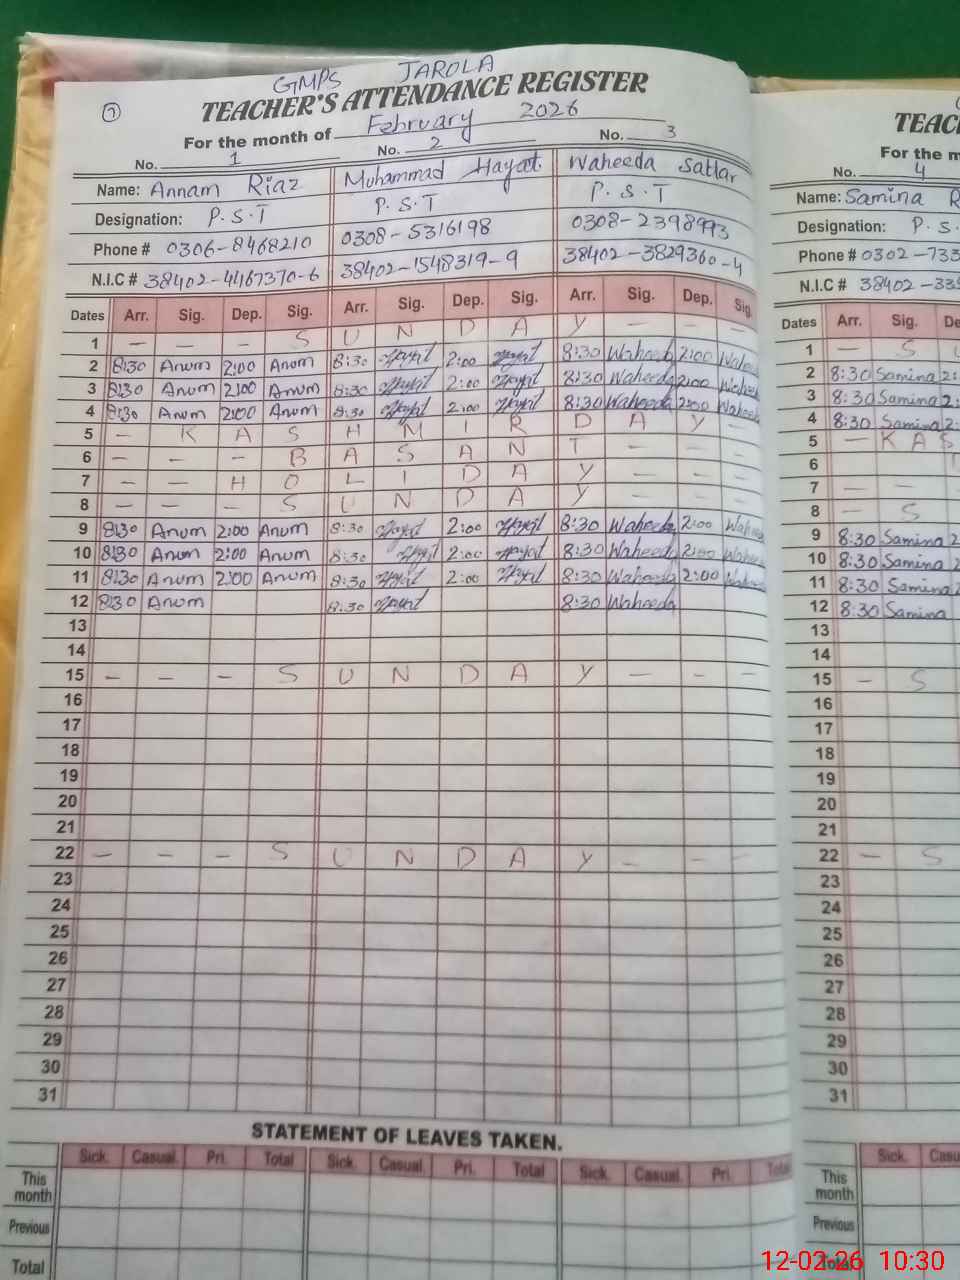 GMPS JAROLA
7
TEACHER'S ATTENDANCE REGISTER
For the month of February 2026
No. 1 No. 2 No. 3
Name: Annam Riaz Muhammad Hayat Waheeda Sattar
Designation: P.S.T P.S.T P.S.T
Phone # 0306-8468210 0308-5316198 0308-2398993
N.I.C # 38402-4467370-6 38402-1548319-9 38402-3829360-4
Dates Arr. Sig. Dep. Sig. Arr. Sig. Dep. Sig. Arr. Sig. Dep. Sig.
1 – – – S U N D A Y – – –
2 8:30 Anum 2:00 Anum 8:30 Hayat 2:00 Hayat 8:30 Waheeda 2:00 Waheeda
3 8:30 Anum 2:00 Anum 8:30 Hayat 2:00 Hayat 8:30 Waheeda 2:00 Waheeda
4 8:30 Anum 2:00 Anum 8:30 Hayat 2:00 Hayat 8:30 Waheeda 2:00 Waheeda
5 – K A S H M I R D A Y –
6 – – – B A S A N T – – –
7 – – H O L I D A Y – – –
8 – – – S U N D A Y – – –
9 8:30 Anum 2:00 Anum 8:30 Hayat 2:00 Hayat 8:30 Waheeda 2:00 Waheeda
10 8:30 Anum 2:00 Anum 8:30 Hayat 2:00 Hayat 8:30 Waheeda 2:00 Waheeda
11 8:30 Anum 2:00 Anum 8:30 Hayat 2:00 Hayat 8:30 Waheeda 2:00 Waheeda
12 8:30 Anum 8:30 Hayat 8:30 Waheeda
13
14
15 – – – S U N D A Y – – –
16
17
18
19
20
21
22 – – – S U N D A Y – – –
23
24
25
26
27
28
29
30
31
STATEMENT OF LEAVES TAKEN.
Sick. Casual. Pri. Total Sick. Casual. Pri. Total Sick. Casual. Pri. Total
This month
Previous
Total
TEAC
For the m
No. 4
Name: Samina R
Designation: P.S.
Phone # 0302-733
N.I.C # 38402-339
Dates Arr. Sig. De
1 – S U
2 8:30 Samina 2:
3 8:30 Samina 2:
4 8:30 Samina 2:
5 – K A S
6
7 – –
8 – S
9 8:30 Samina 2
10 8:30 Samina 2
11 8:30 Samina 2
12 8:30 Samina
13
14
15 – S
16
17
18
19
20
21
22 – S
23
24
25
26
27
28
29
30
31
Sick. Casu
This month
Previous
Total
12-02-26 10:30